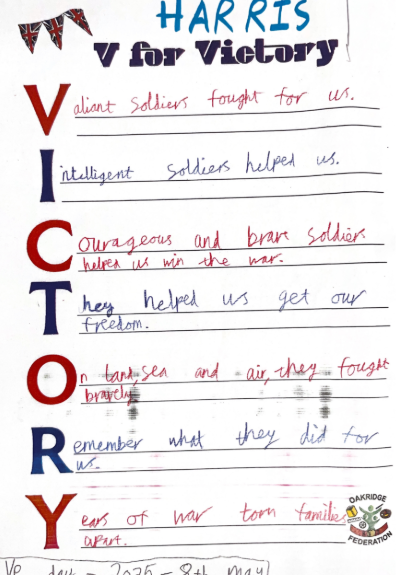 HARRIS
V for Victory
Valiant soldiers fought for us.
Intelligent soldiers helped us.
Courageous and brave soldiers
helped us win the war.
They helped us get our
freedom.
On land, sea and air, they fought
bravely
Remember what they did for
us.
Years of war torn families
apart.
OAKRIDGE
FEDERATION
VE day - 2025 - 8th may